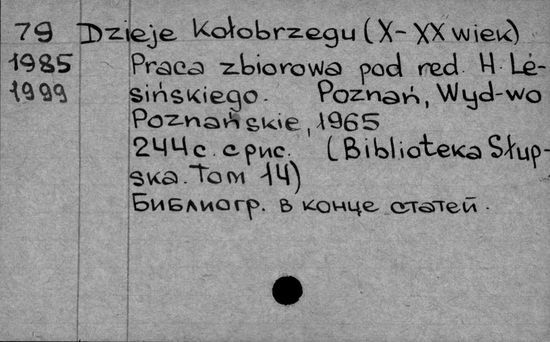 79 Dzieje Kołobrzegu (X-XX wiek)
1985 Praca zbiorowa pod red. H. Le-
1999 sińskiego. Poznań, Wyd-wo
Poznańskie, 1965
244 с. с рис. (Biblioteka Słup-
ska. Tom 14)
Библиогр. в конце статей.